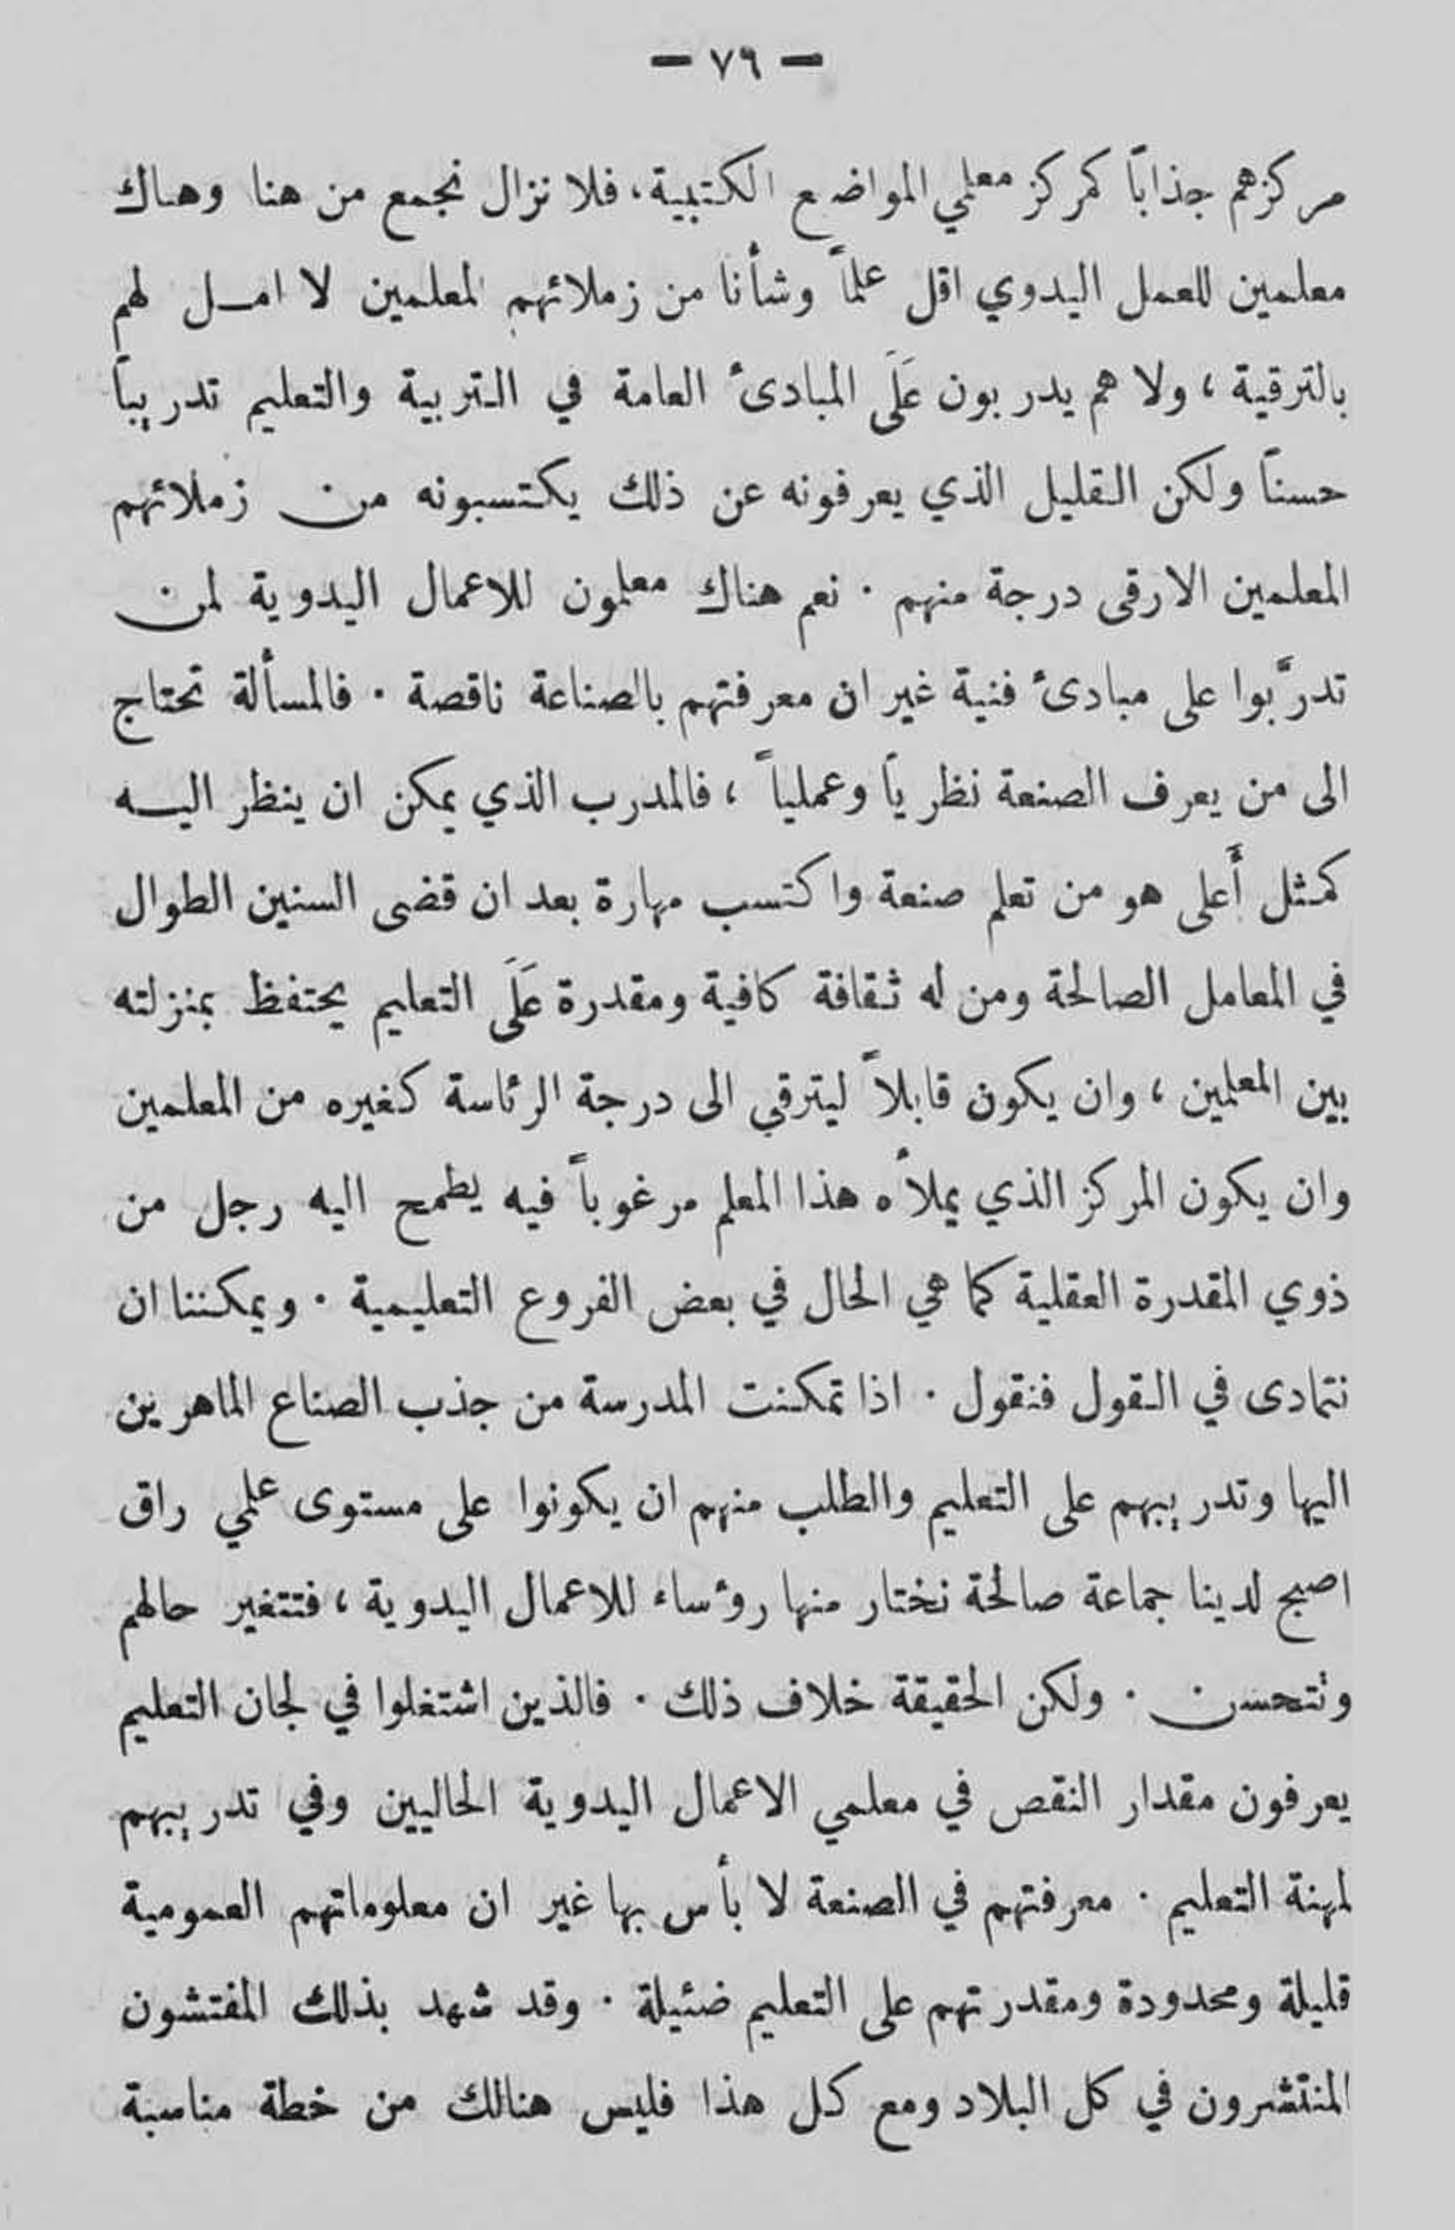 — ٧٩ —
مركزهم جذاباً كمركز معلمي المواضيع الكتبية، فلا نزال نجمع من هنا وهناك
معلمين للعمل اليدوي اقل علماً وشأنا من زملائهم المعلمين لا امل لهم
بالترقية ، ولا هم يدربون عَلَى المبادئ العامة في التربية والتعليم تدريباً
حسناً ولكن القليل الذي يعرفونه عن ذلك يكتسبونه من زملائهم
المعلمين الارقى درجة منهم . نعم هناك معلمون للاعمال اليدوية لمن
تدرَّبوا على مبادئ فنية غير ان معرفتهم بالصناعة ناقصة . فالمسألة تحتاج
الى من يعرف الصنعة نظرياً وعملياً ، فالمدرب الذي يمكن ان ينظر اليه
كمثل أَعلى هو من تعلم صنعة واكتسب مهارة بعد ان قضى السنين الطوال
في المعامل الصالحة ومن له ثقافة كافية ومقدرة عَلَى التعليم يحتفظ بمنزلته
بين المعلمين ، وان يكون قابلاً ليترقي الى درجة الرئاسة كغيره من المعلمين
وان يكون المركز الذي يملأه هذا المعلم مرغوباً فيه يطمح اليه رجل من
ذوي المقدرة العقلية كما هي الحال في بعض الفروع التعليمية . ويمكننا ان
نتمادى في القول فنقول . اذا تمكنت المدرسة من جذب الصناع الماهرين
اليها وتدريبهم على التعليم والطلب منهم ان يكونوا على مستوى علمي راق
اصبح لدينا جماعة صالحة نختار منها رؤساء للاعمال اليدوية ، فتتغير حالهم
وتتحسن . ولكن الحقيقة خلاف ذلك . فالذين اشتغلوا في لجان التعليم
يعرفون مقدار النقص في معلمي الاعمال اليدوية الحاليين وفي تدريبهم
لمهنة التعليم . معرفتهم في الصنعة لا بأس بها غير ان معلوماتهم العمومية
قليلة ومحدودة ومقدرتهم على التعليم ضئيلة . وقد شهد بذلك المفتشون
المنتشرون في كل البلاد ومع كل هذا فليس هنالك من خطة مناسبة